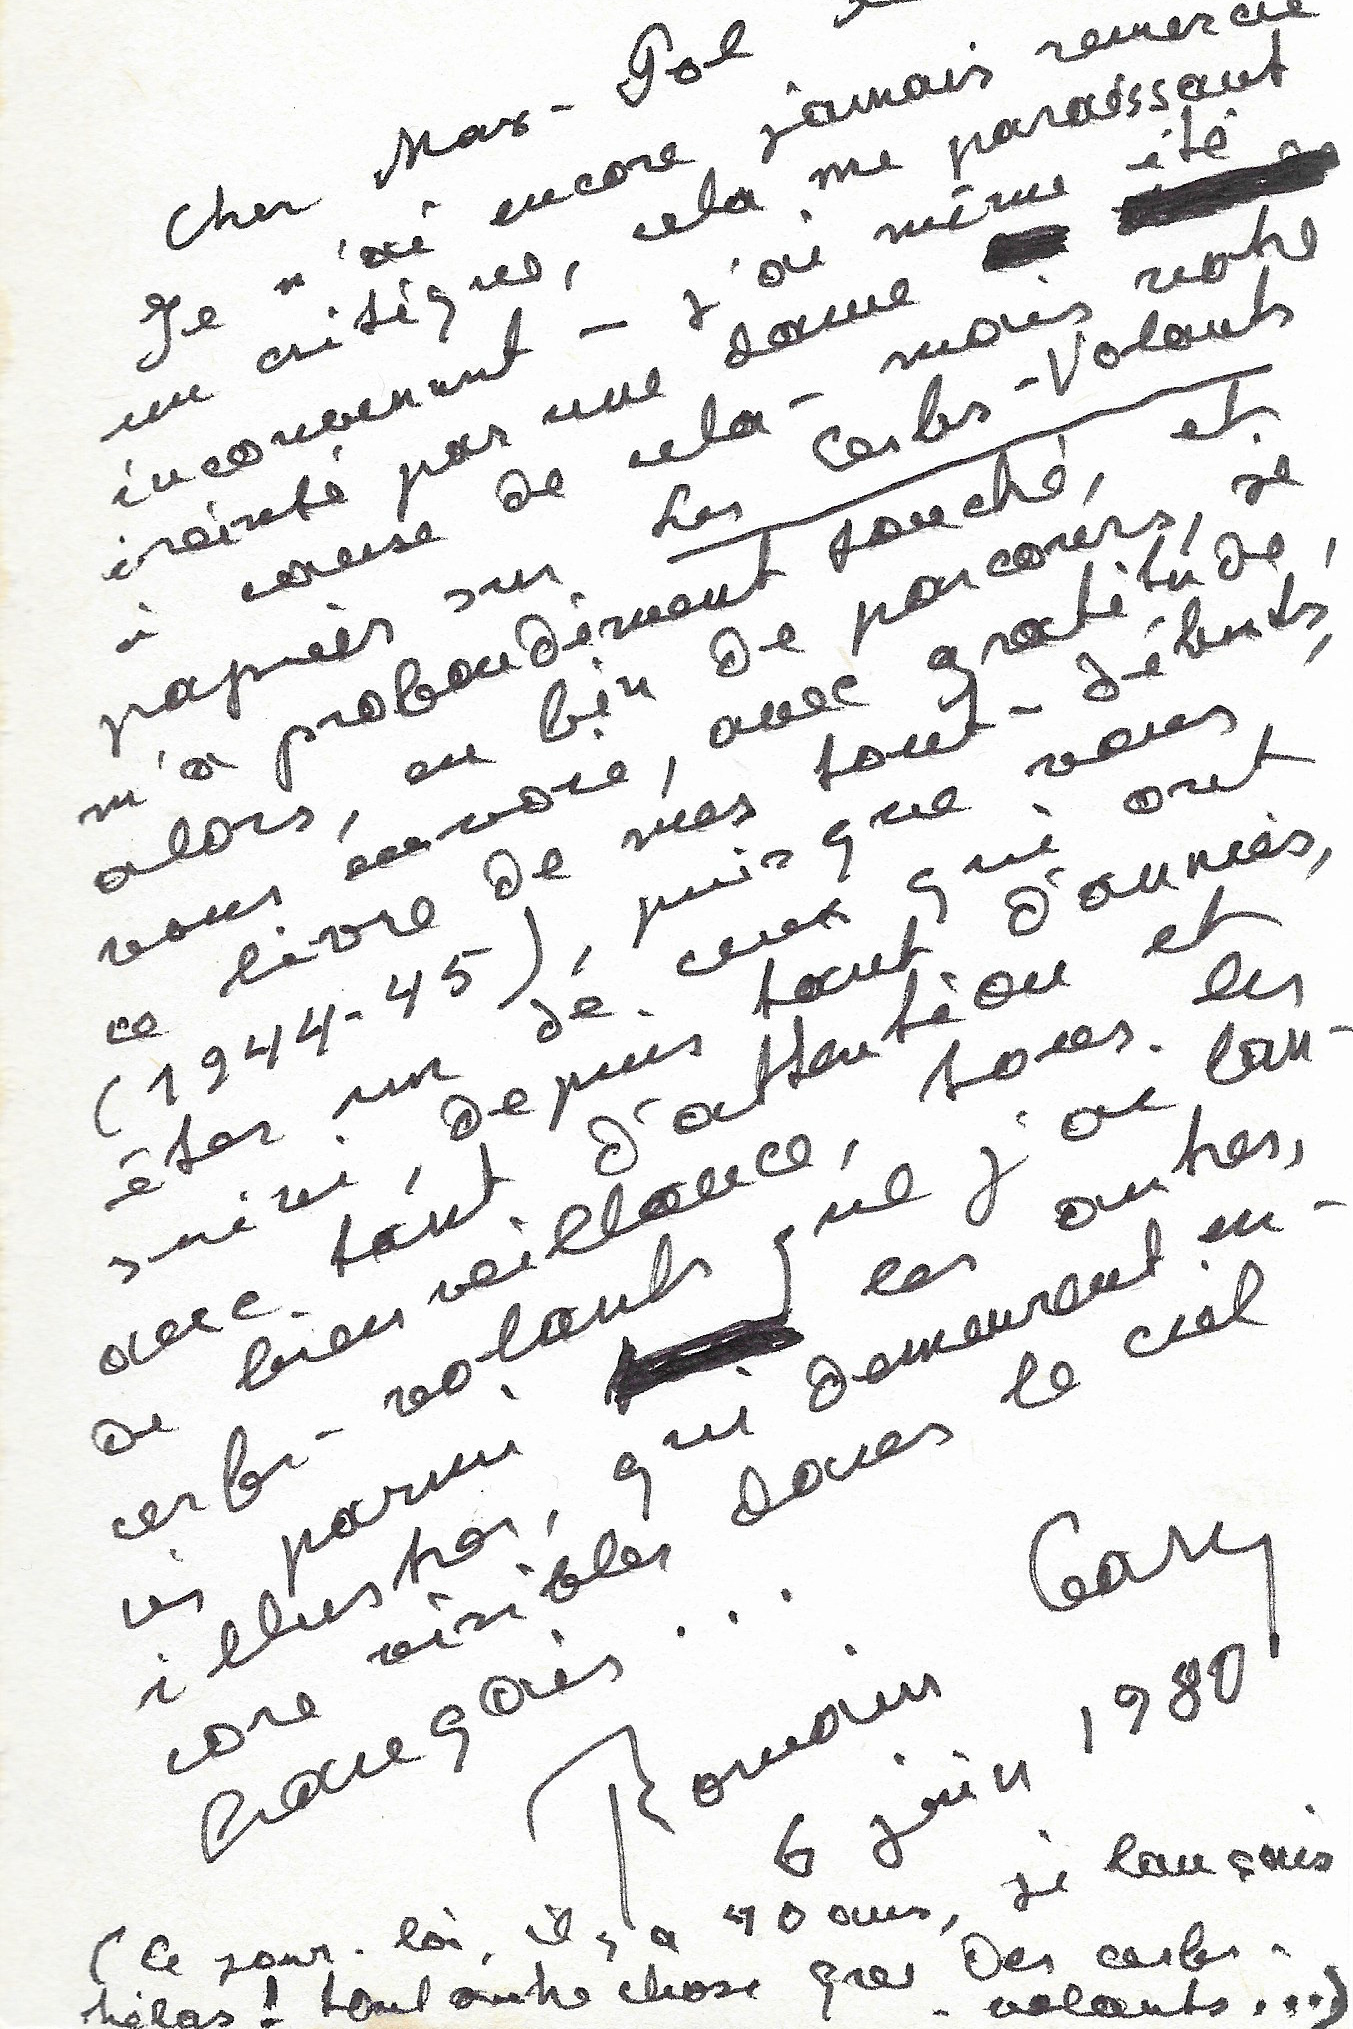 Cher Max-Pol
Je n'ai encore jamais remercié
un critique, cela me paraissant
inconvenant – j'ai même été
éreinté par une dame
à cause de cela – mais votre
papier sur Les Cerfs-Volants
m'a profondément touché, et
alors, en fin de parcours, je
vous envoie, avec gratitude,
ce livre de mes tout-débuts,
(1944-45), puisque vous
êtes un de ceux qui ont
suivi, depuis tant d'années,
avec tant d'attention et
de bienveillance, tous les
cerfs-volants que j'ai lan-
cés parmi les autres,
illustres, qui demeurent en-
core visibles dans le ciel
français...
Romain Gary
6 juin 1980
(Ce jour-là, il y a 40 ans, je lançais
hélas! tout autre chose que des cerfs-
-volants...)